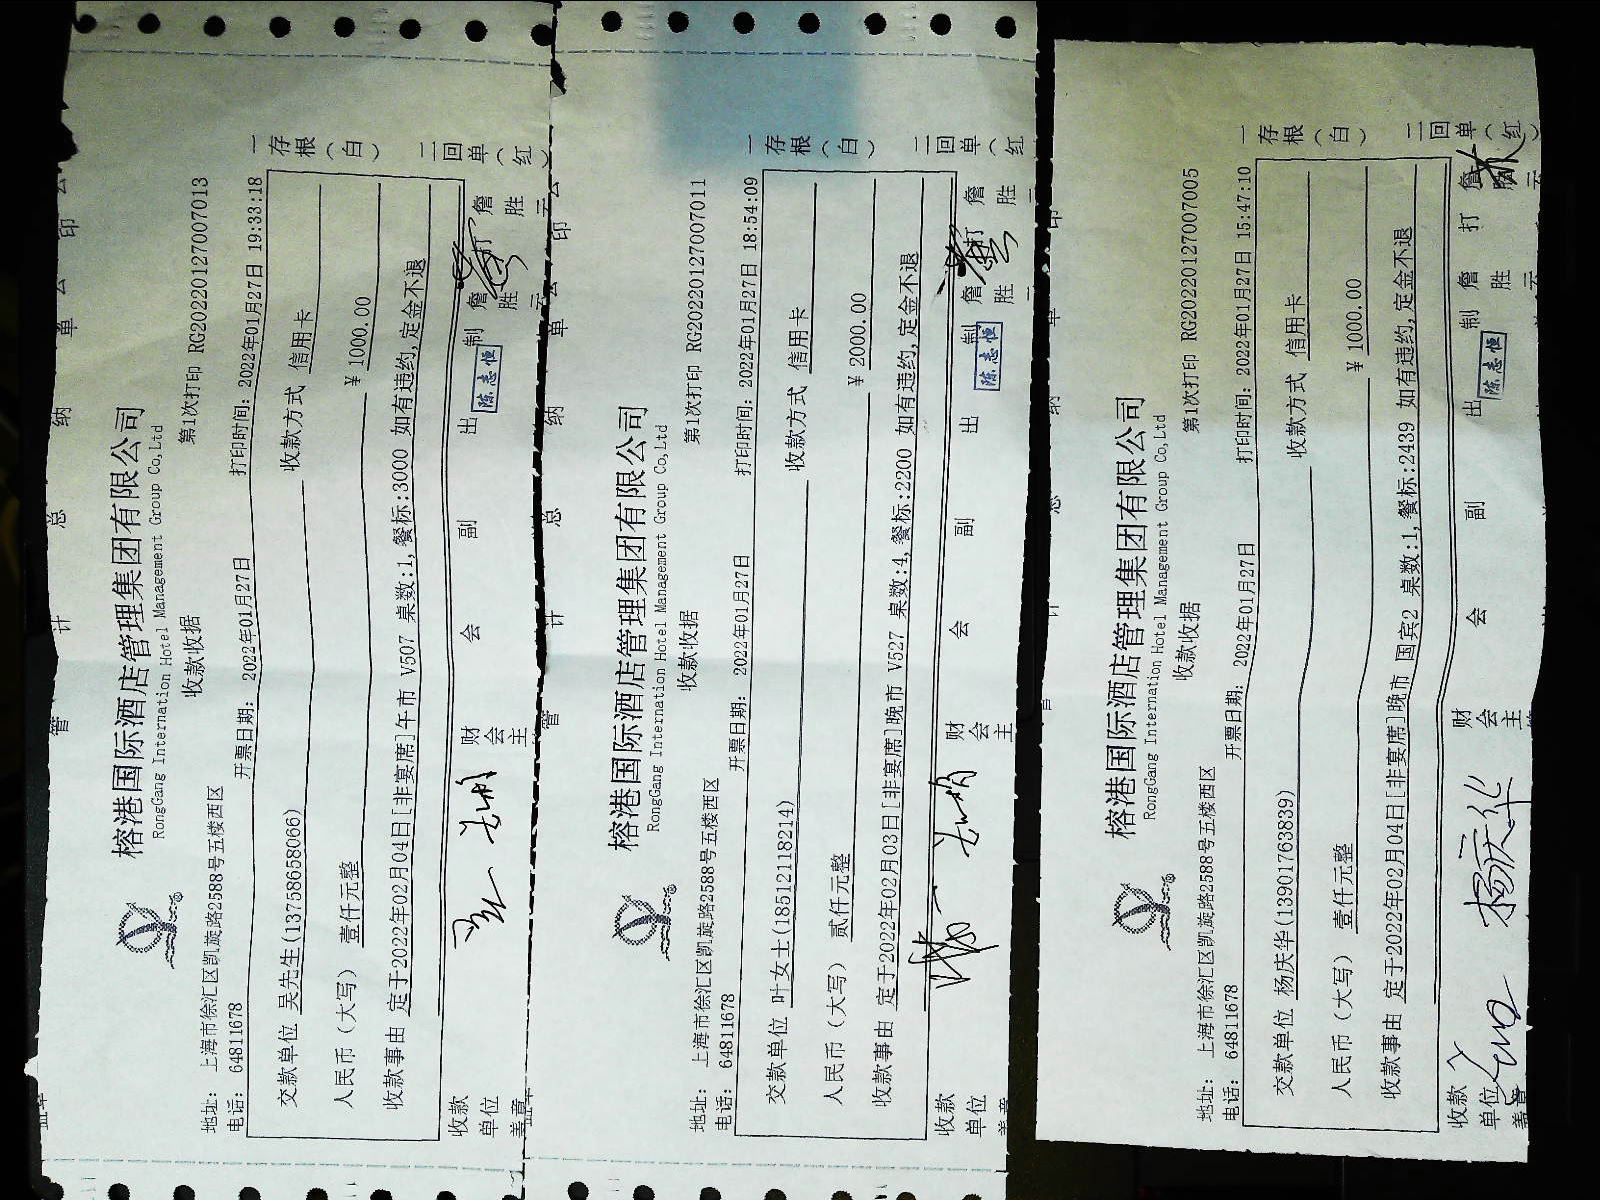 榕港国际酒店管理集团有限公司
RongGang Internation Hotel Management Group Co,Ltd
收款收据
第1次打印 RG20220127007013
地址： 上海市徐汇区凯旋路2588号五楼西区
电话： 64811678
开票日期： 2022年01月27日
打印时间：2022年01月27日 19:33:18
交款单位 吴先生(13758658066)
收款方式 信用卡
人民币（大写） 壹仟元整
¥ 1000.00
收款事由 定于2022年02月04日[非宴席]午市 V507 桌数:1,餐标:3000 如有违约,定金不退
一存根（白）
二回单（红）
收款单位盖章
财会主管
会
副
出
陈志恒
制 詹胜云
打 詹胜云
榕港国际酒店管理集团有限公司
RongGang Internation Hotel Management Group Co,Ltd
收款收据
第1次打印 RG20220127007011
地址： 上海市徐汇区凯旋路2588号五楼西区
电话： 64811678
开票日期： 2022年01月27日
打印时间：2022年01月27日 18:54:09
交款单位 叶女士(18512118214)
收款方式 信用卡
人民币（大写） 贰仟元整
¥ 2000.00
收款事由 定于2022年02月03日[非宴席]晚市 V527 桌数:4,餐标:2200 如有违约,定金不退
一存根（白）
二回单（红）
收款单位盖章
财会主
会
副
出
陈志恒
制 詹胜云
打 詹胜云
榕港国际酒店管理集团有限公司
RongGang Internation Hotel Management Group Co,Ltd
收款收据
第1次打印 RG20220127007005
地址： 上海市徐汇区凯旋路2588号五楼西区
电话： 64811678
开票日期： 2022年01月27日
打印时间：2022年01月27日 15:47:10
交款单位 杨庆华(13901763839)
收款方式 信用卡
人民币（大写） 壹仟元整
¥ 1000.00
收款事由 定于2022年02月04日[非宴席]晚市 国宾2 桌数:1,餐标:2439 如有违约,定金不退
一存根（白）
二回单（红）
收款单位盖章
杨庆华
财会主
会
副
出
陈志恒
制 詹胜云
打 詹胜云